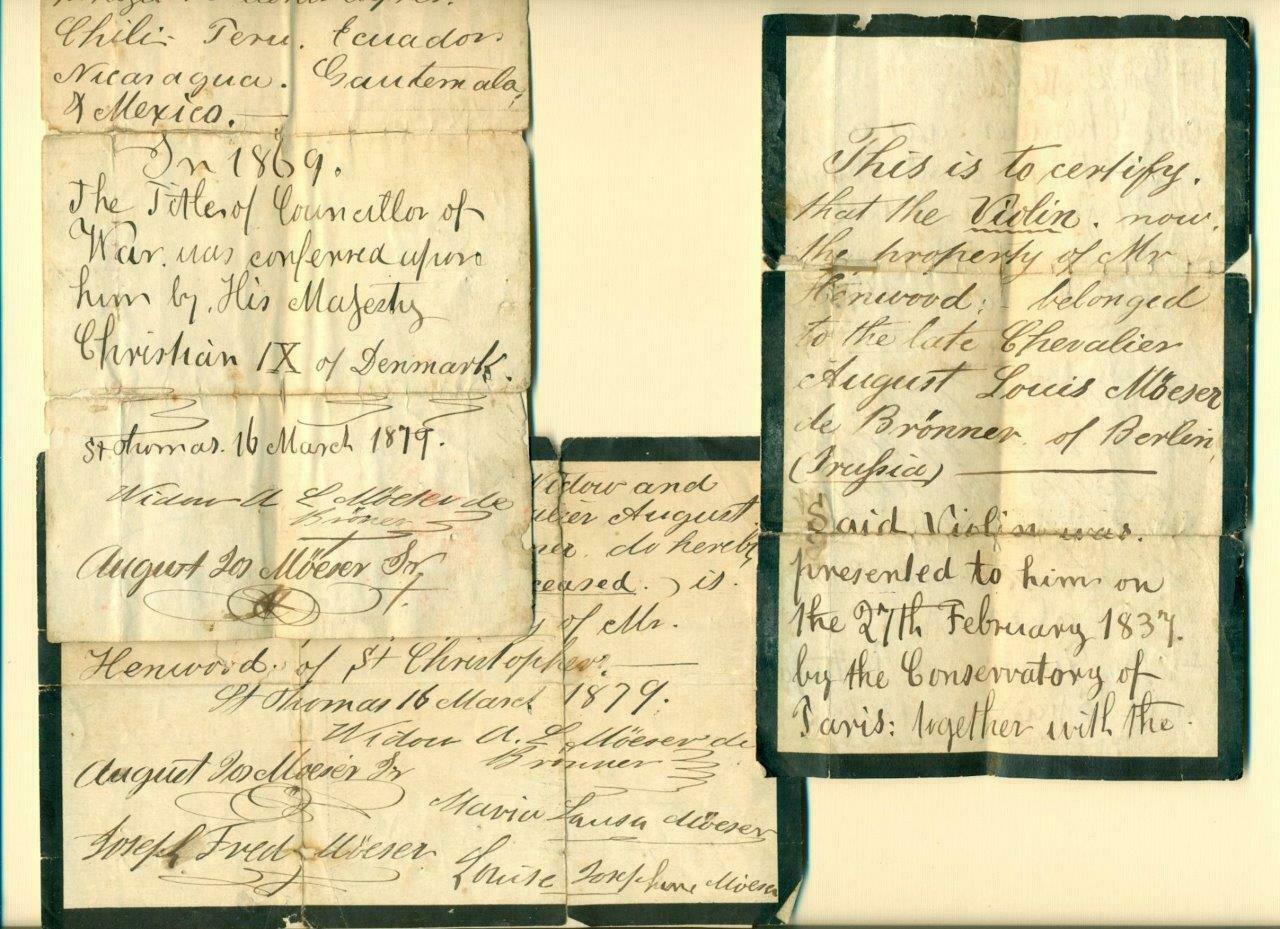 Chili- Peru. Ecuador
Nicaragua. Gautemala,
& Mexico.
In 1869.
The Title of Councillor of
War. was conferred upon
him by. His Majesty
Christian IX of Denmark.
St Thomas. 16 March 1879.
Widow A L Möeser de
Bröner
August Jos Möeser Jr
Widow and
August
do hereby
ceased.) is.
of Mr.
Henwood. of St Christopher.
St Thomas 16 March 1879.
Widow A. L Möeser de
Brönner
August Jos Möeser Jr
Maria Louisa Möeser
Joseph Fred Möeser
Louise Josephine Möeser
This is to certify.
that the Violin. now.
the property of Mr
Henwood: belonged
to the late Chevalier
August Louis Möeser
de Brönner. of Berlin,
(Prussia)
Said Violin was.
presented to him on
the 27th February 1837.
by the Conservatory of
Paris: together with the